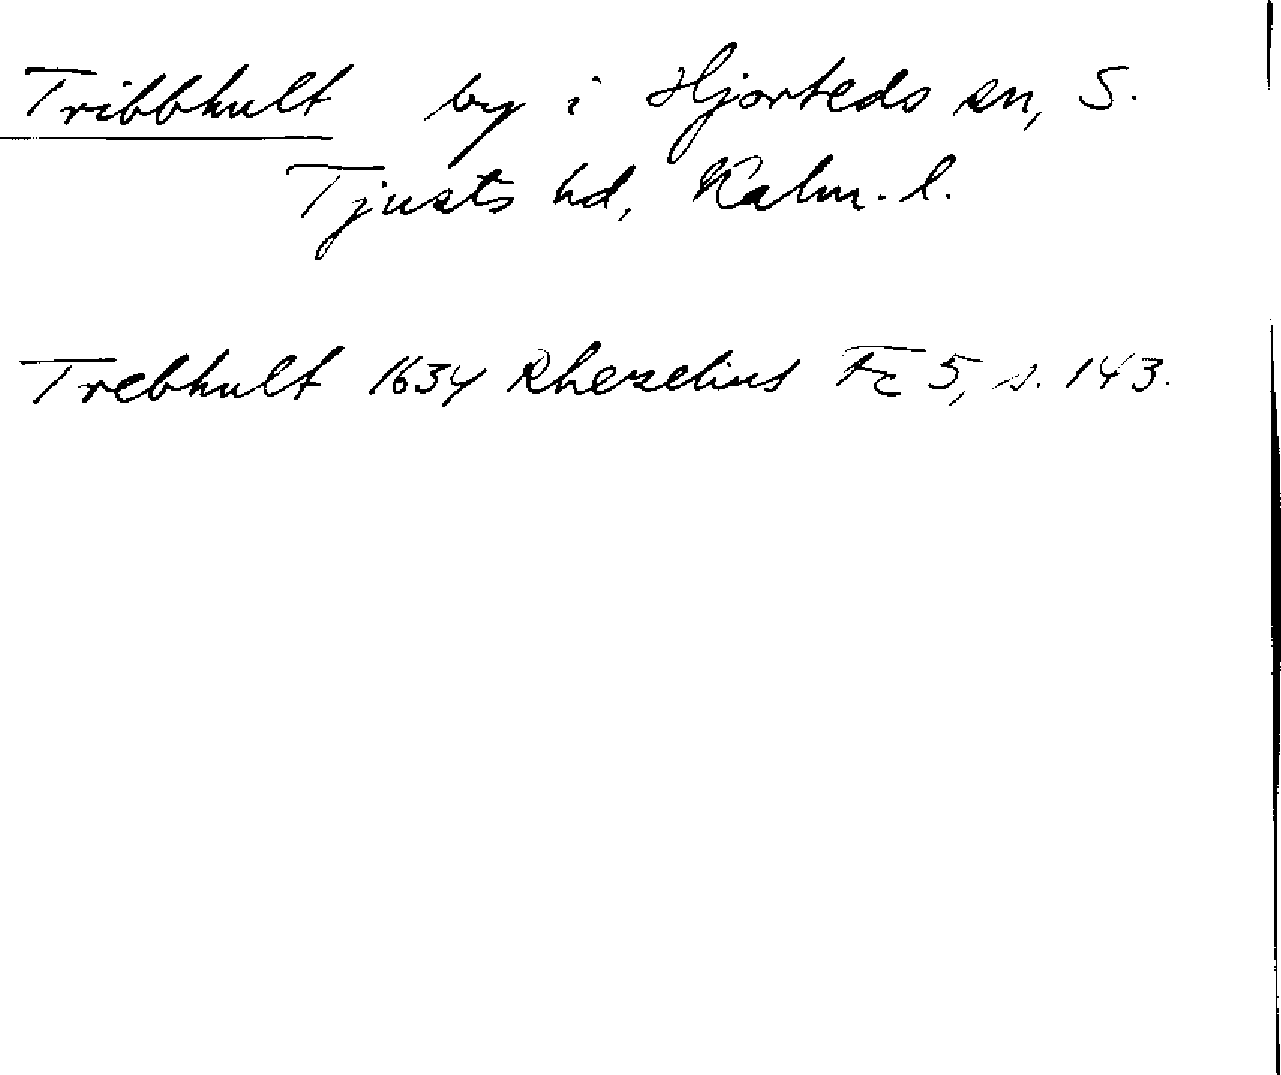 Tribbhult by i Hjorteds sn, S.
Tjusts hd, Kalm. l.
Trebhult 1634 Rhezelius Fc 5, s. 143.